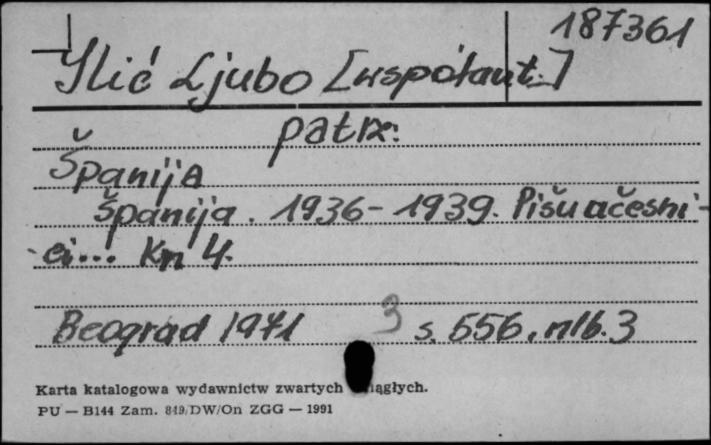 187361
Ilić Ljubo [współaut.]
patrz:
Španija
Španija. 1936-1939. Pišu učesni-
ci... Kn 4.
Beograd 1971 3 s. 556, nlb. 3
Karta katalogowa wydawnictw zwartych ciągłych.
PU — B144 Zam. 849/DW/On ZGG — 1991